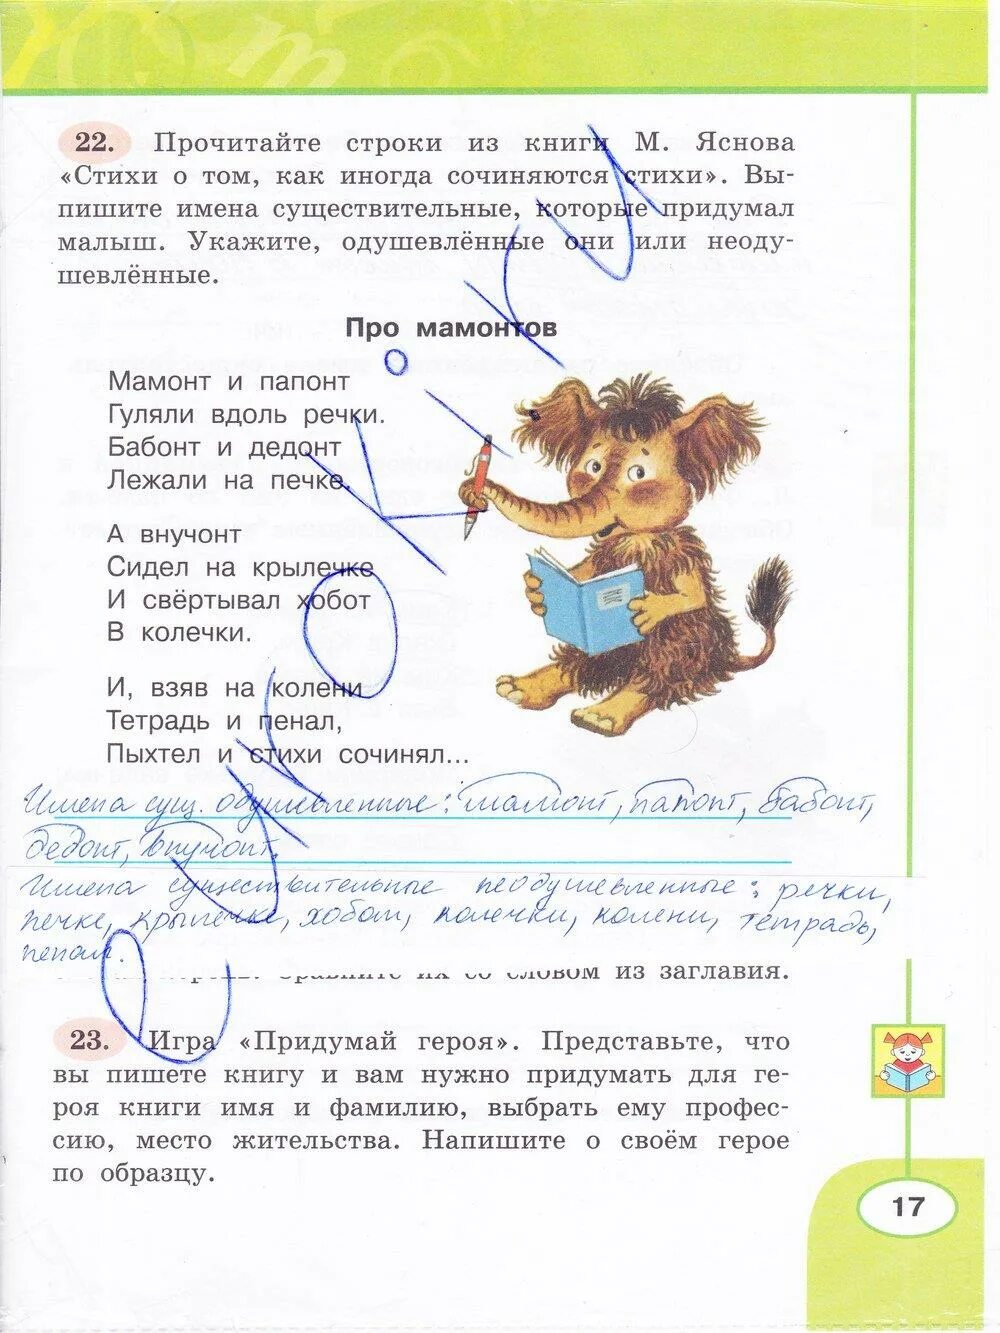 22. Прочитайте строки из книги М. Яснова
«Стихи о том, как иногда сочиняются стихи». Вы-
пишите имена существительные, которые придумал
малыш. Укажите, одушевлённые они или неоду-
шевлённые.
Про мамонтов
Мамонт и папонт
Гуляли вдоль речки.
Бабонт и дедонт
Лежали на печке.
А внучонт
Сидел на крылечке
И свёртывал хобот
В колечки.
И, взяв на колени
Тетрадь и пенал,
Пыхтел и стихи сочинял...
Имена сущ. одушевленные: мамонт, папонт, бабонт,
дедонт, внучонт.
Имена существительные неодушевленные: речки,
печке, крылечке, хобот, колечки, колени, тетрадь,
пенал.
Сравните их со словом из заглавия.
23. Игра «Придумай героя». Представьте, что
вы пишете книгу и вам нужно придумать для ге-
роя книги имя и фамилию, выбрать ему профес-
сию, место жительства. Напишите о своём герое
по образцу.
17